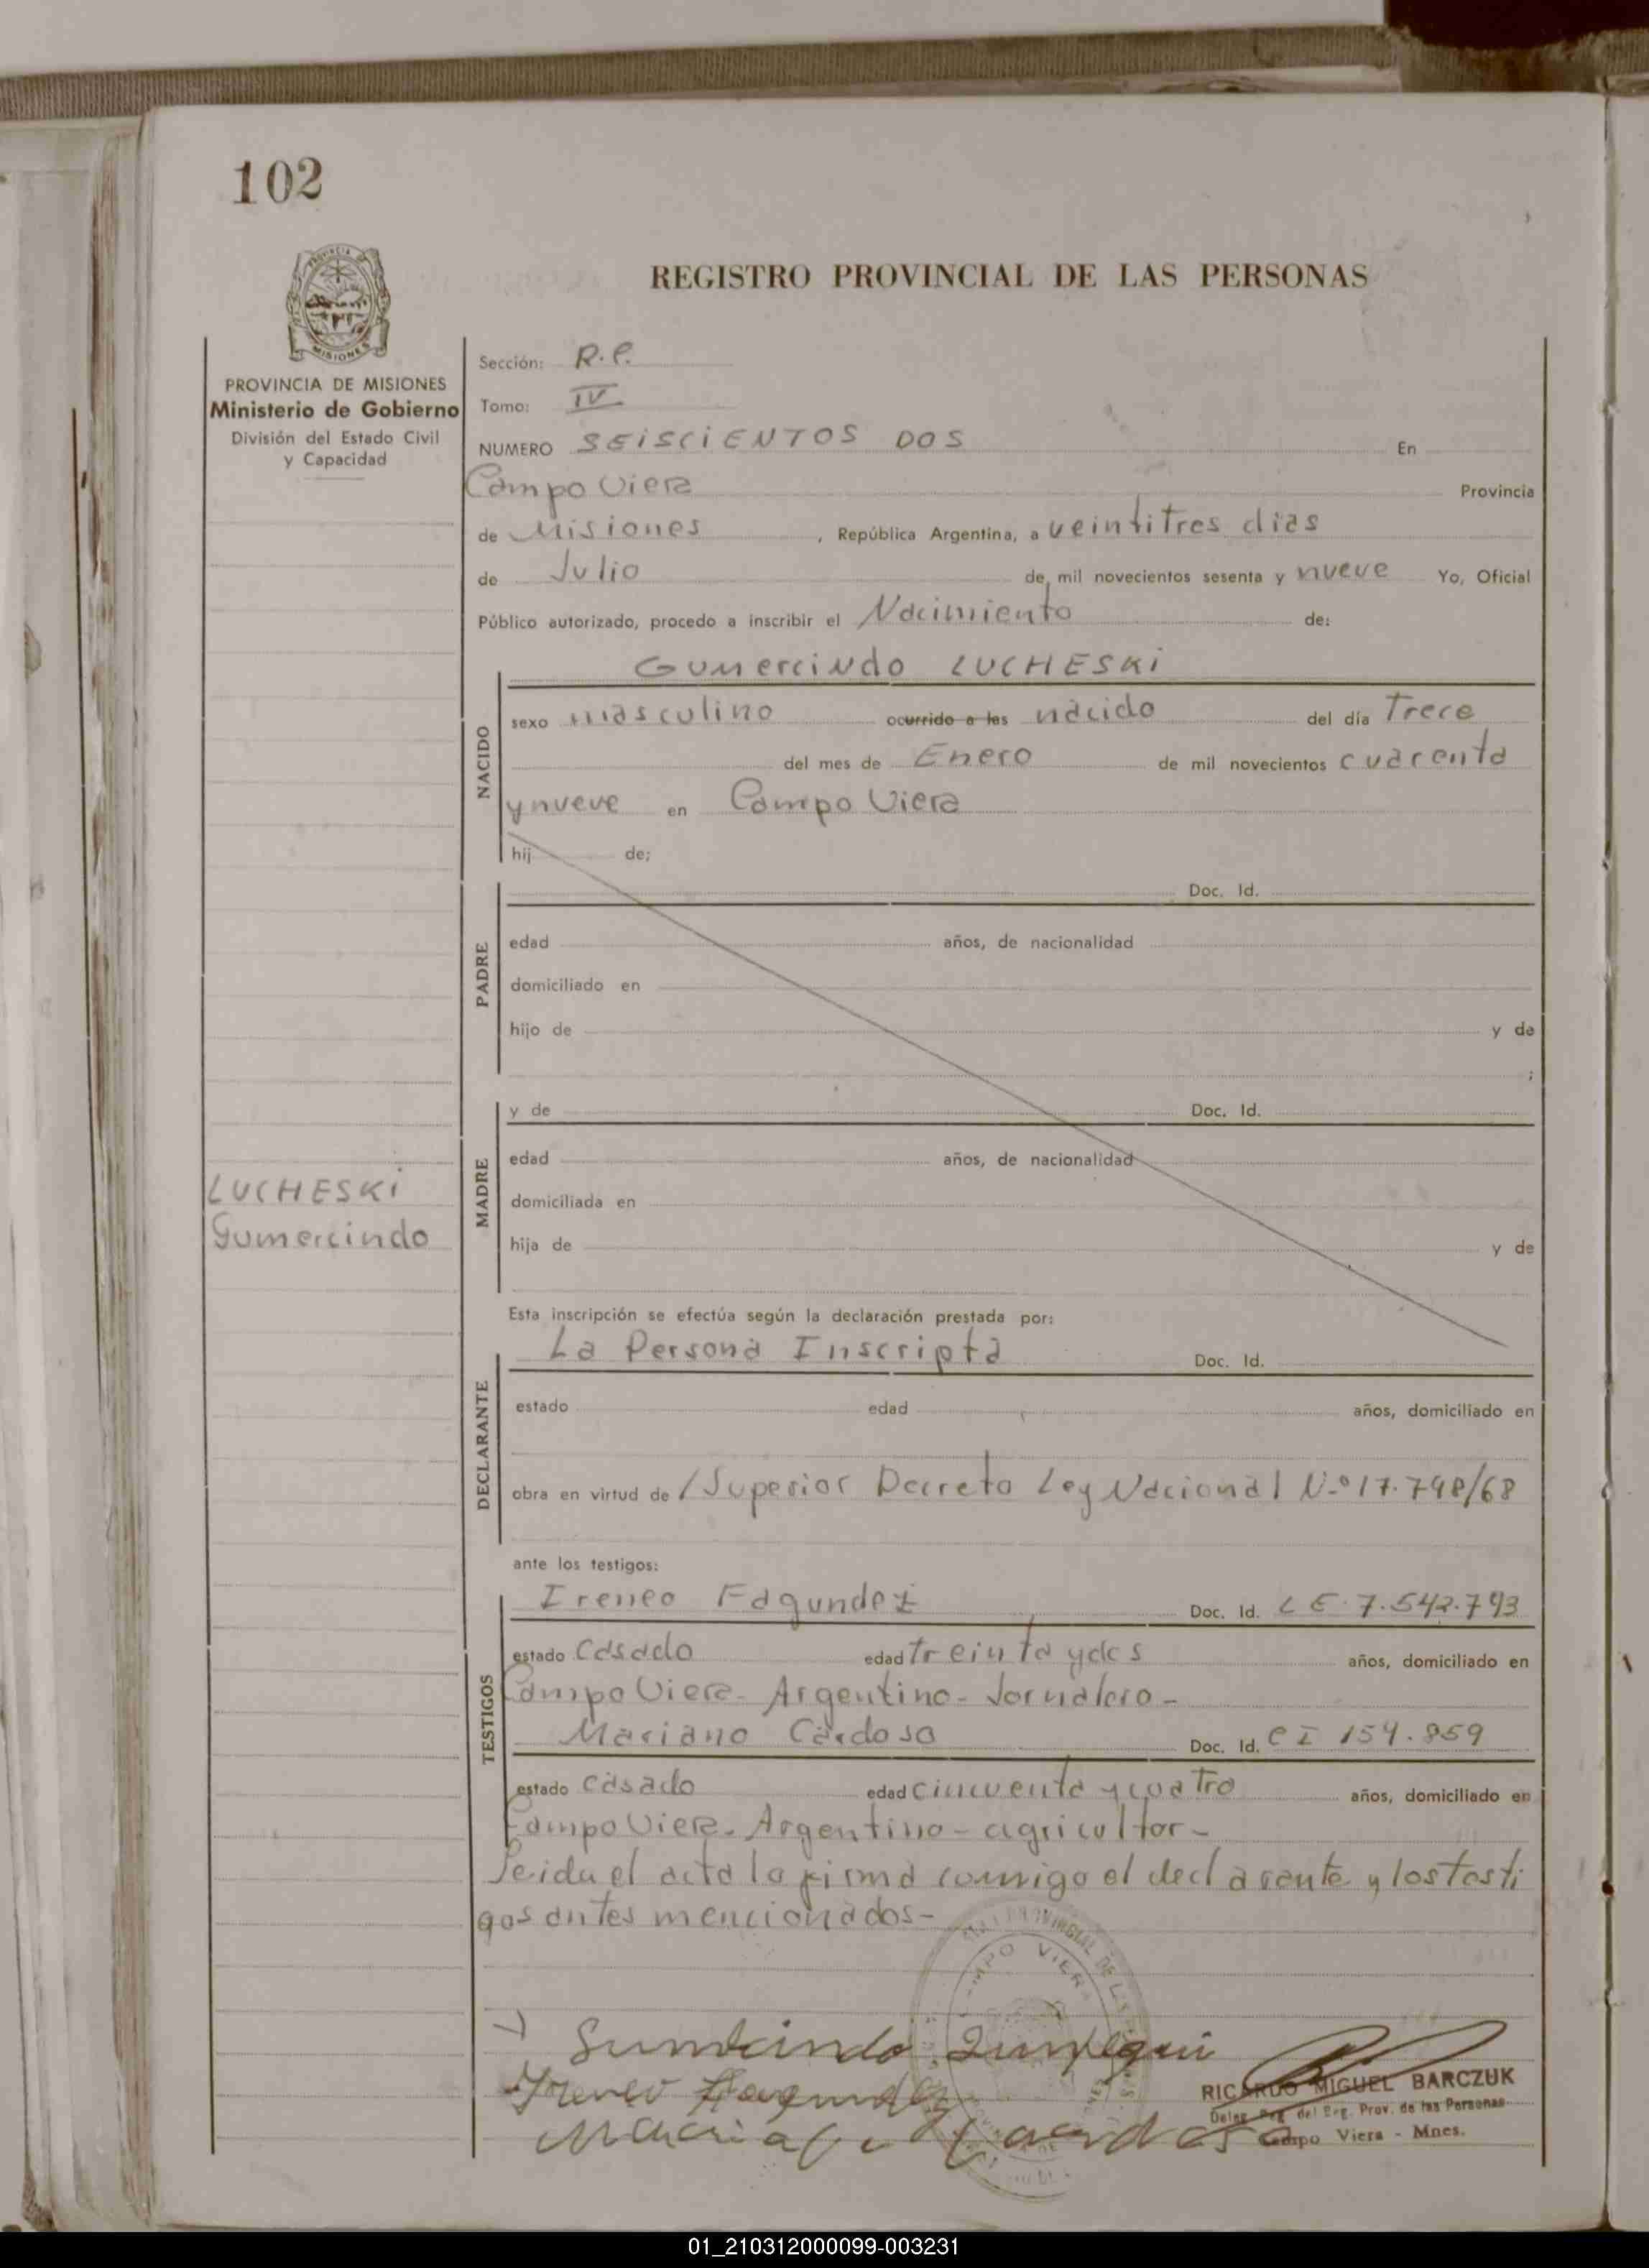 102
PROVINCIA DE MISIONES
Ministerio de Gobierno
División del Estado Civil
y Capacidad
LUCHESKi
Gumercindo
REGISTRO PROVINCIAL DE LAS PERSONAS
Sección: R.P.
Tomo: IV
NUMERO SEiSCiENTOS DOS En
Campo Viera Provincia
de Misiones , República Argentina, a veintitres dias
de Julio de mil novecientos sesenta y nueve Yo, Oficial
Público autorizado, procedo a inscribir el Nacimiento de:
NACIDO
Gumercindo LUCHESKi
sexo masculino ocurrido a las nacido del día Trece
del mes de Enero de mil novecientos cuarenta
y nueve en Campo Viera
hij de;
PADRE
Doc. Id.
edad años, de nacionalidad
domiciliado en
hijo de y de
;
MADRE
y de Doc. Id.
edad años, de nacionalidad
domiciliada en
hija de y de
Esta inscripción se efectúa según la declaración prestada por:
DECLARANTE
La Persona Inscripta Doc. Id.
estado edad años, domiciliado en
obra en virtud de / Superior Decreto Ley Nacional N-º 17.798/68
ante los testigos:
TESTIGOS
Ireneo Fagundez Doc. Id. LE 7.542.793
estado Casado edad treinta y dos años, domiciliado en
Campo Viera- Argentino- Jornalero-
Mariano Cardoso Doc. Id. CI 159.859
estado Casado edad cincuenta y cuatro años, domiciliado en
Campo Viera- Argentino- agricultor-
Leida el acta la firma conmigo el declarante y los testi
gos antes mencionados-
CAMPO VIERA
Ireneo Fagundez
Mariano Cardoso
RICARDO MIGUEL BARCZUK
del Reg. Prov. de las Personas
Campo Viera - Mnes.
01_210312000099-003231